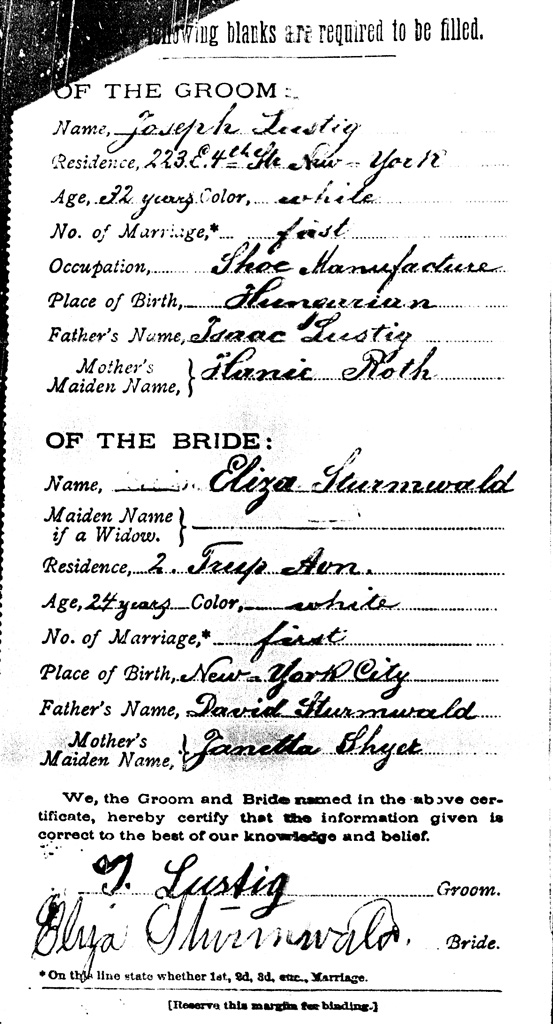 following blanks are required to be filled.
OF THE GROOM:
Name, Joseph Lustig
Residence, 223. E. 4th St. New-York
Age, 22 years Color, white
No. of Marriage,* first
Occupation, Shoe Manufacture
Place of Birth, Hungarian
Father's Name, Isaac Lustig
Mother's
Maiden Name, } Hanie Roth
OF THE BRIDE:
Name, Eliza Sturmwald
Maiden Name
if a Widow. }
Residence, 2. Trup Avn.
Age, 24 years Color, white
No. of Marriage,* first
Place of Birth, New-York City
Father's Name, David Sturmwald
Mother's
Maiden Name, } Janetta Shyer
We, the Groom and Bride named in the above cer-
tificate, hereby certify that the information given is
correct to the best of our knowledge and belief.
J. Lustig Groom.
Eliza Sturmwald. Bride.
*On this line state whether 1st, 2d, 3d, etc., Marriage.
[Reserve this margin for binding.]